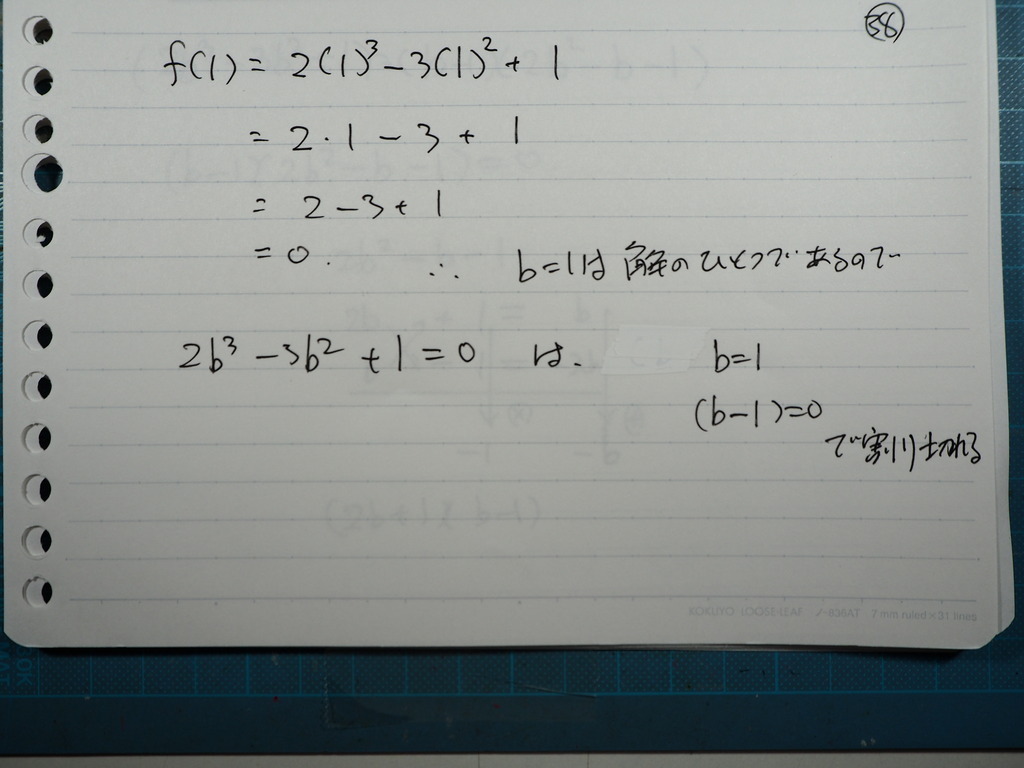 38
f(1) = 2(1)³ − 3(1)² + 1
= 2・1 − 3 + 1
= 2 − 3 + 1
= 0. ∴ b=1は 解のひとつであるので
2b³ − 3b² + 1 = 0 は、 b=1
(b−1)=0
で割り切れる
KOKUYO LOOSE-LEAF ノ-836AT 7 mm ruled×31 lines